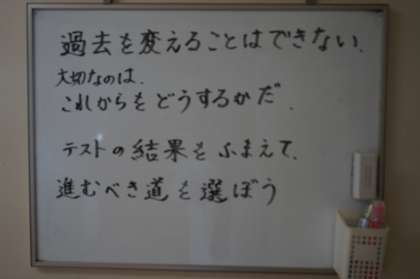 過去を変えることはできない.
大切なのは.
これからをどうするかだ.
テストの結果をふまえて.
進むべき道を選ぼう